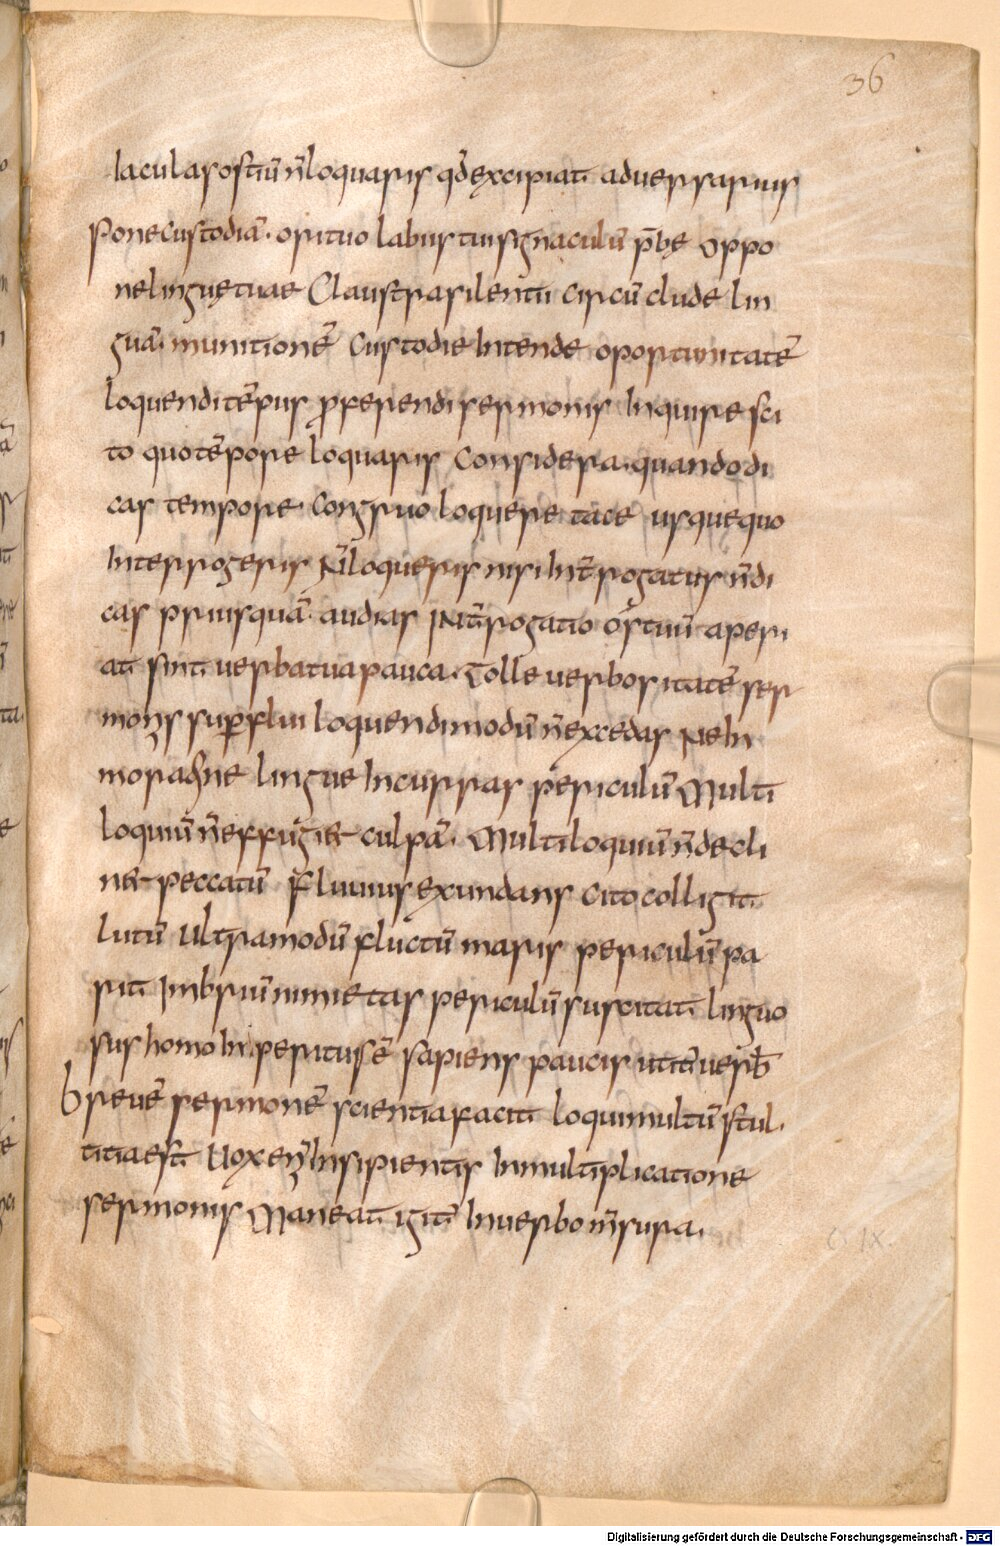 36
lacula sostiū n̄ loquaris qd̄ excipiat adversarius
Pone custodiā. ori tuo labiis tuis signaculū p̄bę oppo
ne linguę tuae Claustra silentii circū clude lin
guā. munitionē custodie Intende oportunitatē
loquendi tēpus proferendi sermonis Inquire sci
to quo tēpore loquaris considera. quando di
cas tempore. congruo loquere tace usque quo
Interrogeris N̄ loqueris nisi Int̄rogatus n̄ di
cas priusquā. audias INt̄rogatio ostiuū aperi
at sint verba tua pauca. Tolle verbositatē ser
monis superflui loquendi modū n̄ excedas Ne In
moderatione lingue Incurras periculū Multi
loquiū n̄ effugiet culpā. Multiloquiū n̄ decli
net peccatū Fluvius exundans cito colligit
lutū Ultra modū fluctū maris periculū pa
rit Imbriū nimietas periculū suscitat linguo
sus homo Inperitus ē sapiens paucis utit̄ verb̄
brevē sermonē scientia facit loqui multū stul.
titia est Vox eni̅ Insipientis In multiplicatione
sermonis Maneat igit̄ In verbo m̄sura.
C. IX.
Digitalisierung gefördert durch die Deutsche Forschungsgemeinschaft - DFG